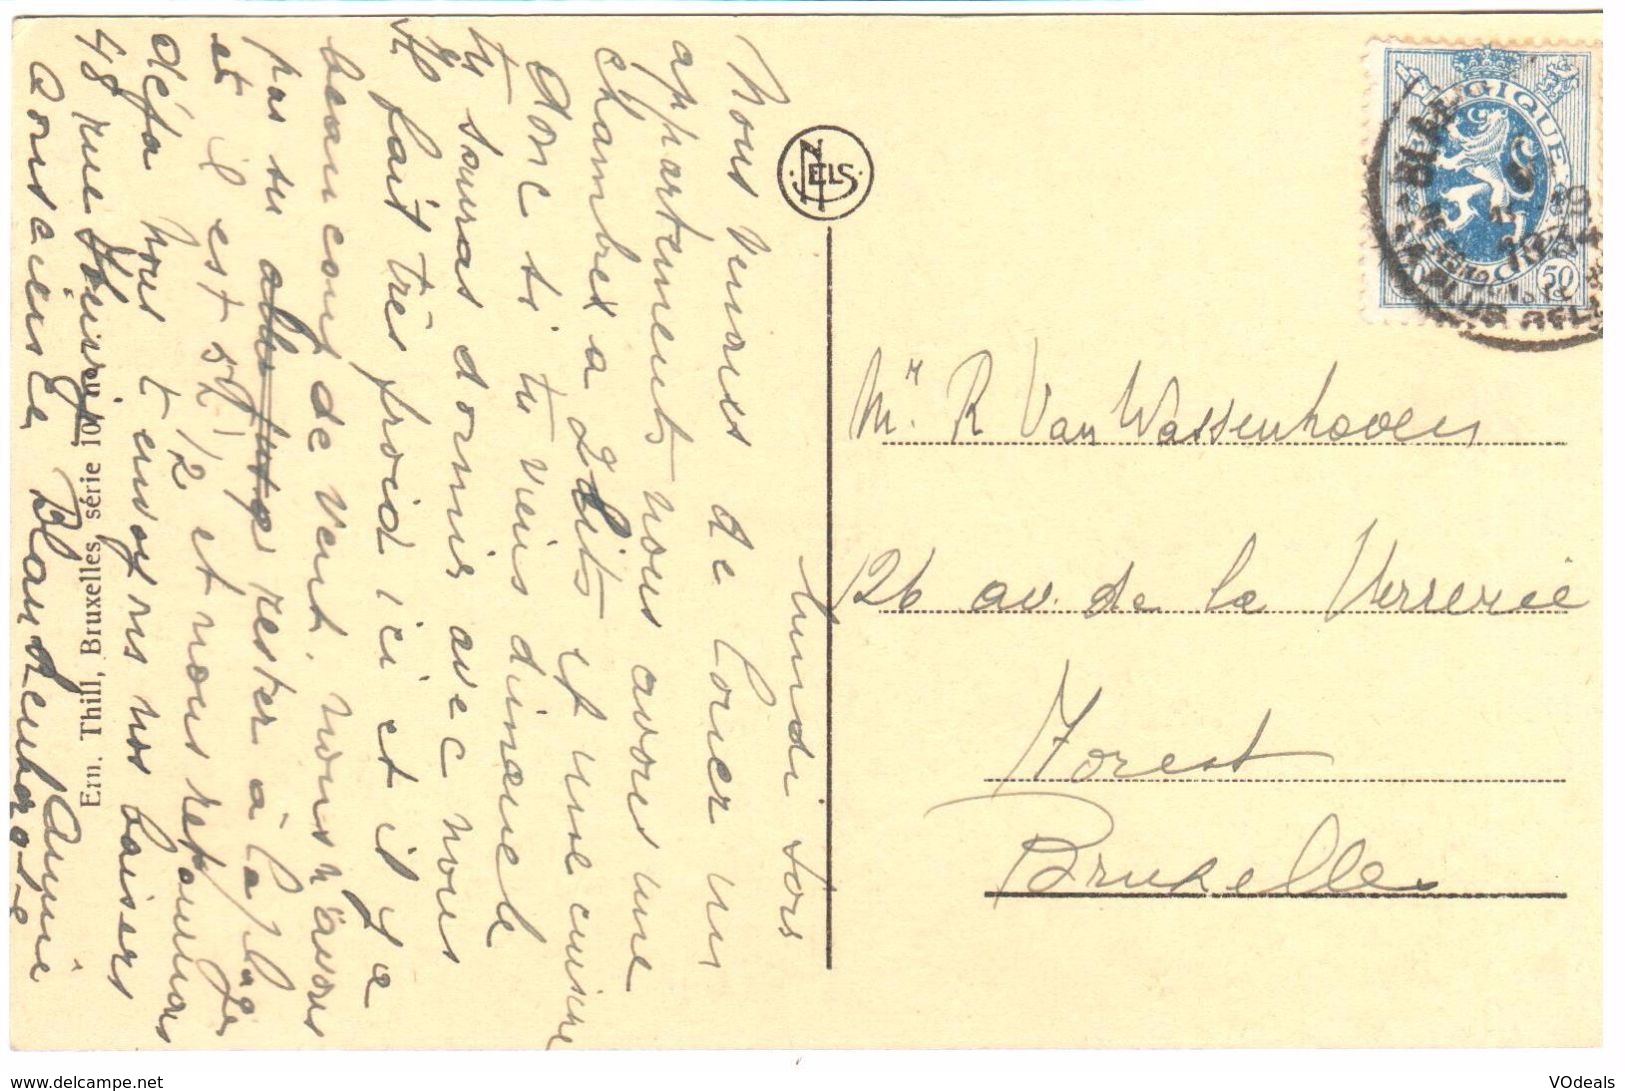 Lundi soir
Nous venons de louer un
appartement nous avons une
chambre a 2 lits et une cuisine
donc si tu viens dimanche
tu souras dormir avec nous
Il fait très froid ici et il y a
beaucoup de vent. nous n'avons
pas su rester à la plage
et il est 5 1/2 et nous retournons
déja nous t'envoyons nos baisers
48 rue Annie
Consciense Blankenberghe
Ern. Thill, Bruxelles, série 10, no
NELS
BELGIQUE
50
1934
Mr R Van Wassenhoven
126 av. de la Verrerie
Forest
Bruxelles
www.delcampe.net
VOdeals